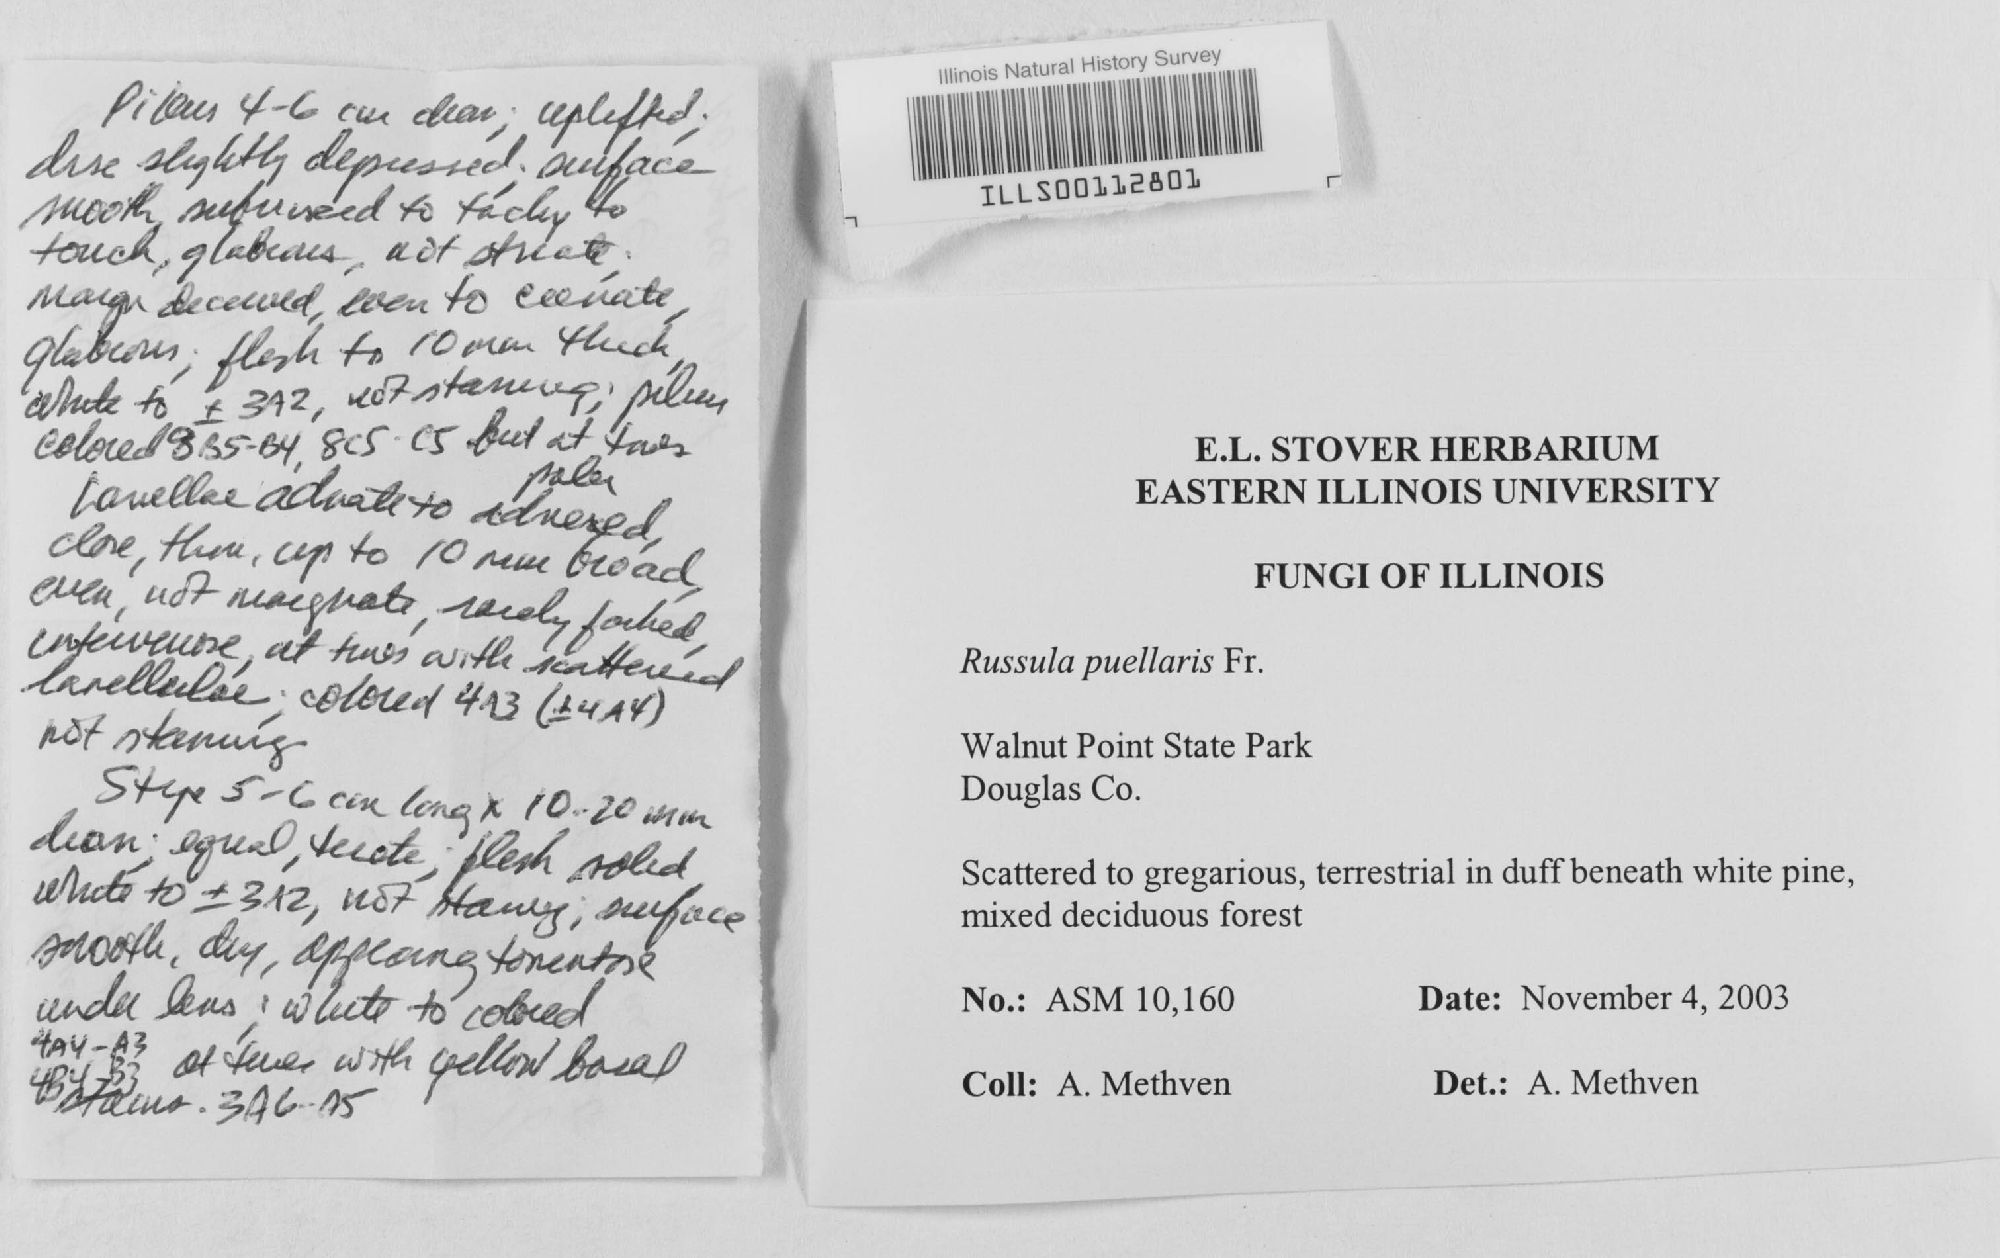 Pileus 4-6 cm diam; uplifted;
disc slightly depressed; surface
smooth, subviscid to tacky to
touch, glabrous, not striate;
margin decurved, even to crenate,
glabrous; flesh to 10 mm thick,
white to ± 3A2, not staining; pileus
colored 8B5-B4, 8C5-C5 but at times
paler
Lamellae adnate to adnexed,
close, thin, up to 10 mm broad,
even, not marginate, rarely forked,
intervenose, at times with scattered
lamellulae; colored 4A3 (±4A4)
not staining
Stipe 5-6 cm long x 10-20 mm
diam; equal, terete; flesh solid
white to ± 3A2, not staining; surface
smooth, dry, appearing tomentose
under lens; white to colored
4A4-A3
4B4-B3 at times with yellow basal
stains. 3A6-A5
Illinois Natural History Survey
ILLS00112801
E.L. STOVER HERBARIUM
EASTERN ILLINOIS UNIVERSITY
FUNGI OF ILLINOIS
Russula puellaris Fr.
Walnut Point State Park
Douglas Co.
Scattered to gregarious, terrestrial in duff beneath white pine,
mixed deciduous forest
No.: ASM 10,160 Date: November 4, 2003
Coll: A. Methven Det.: A. Methven